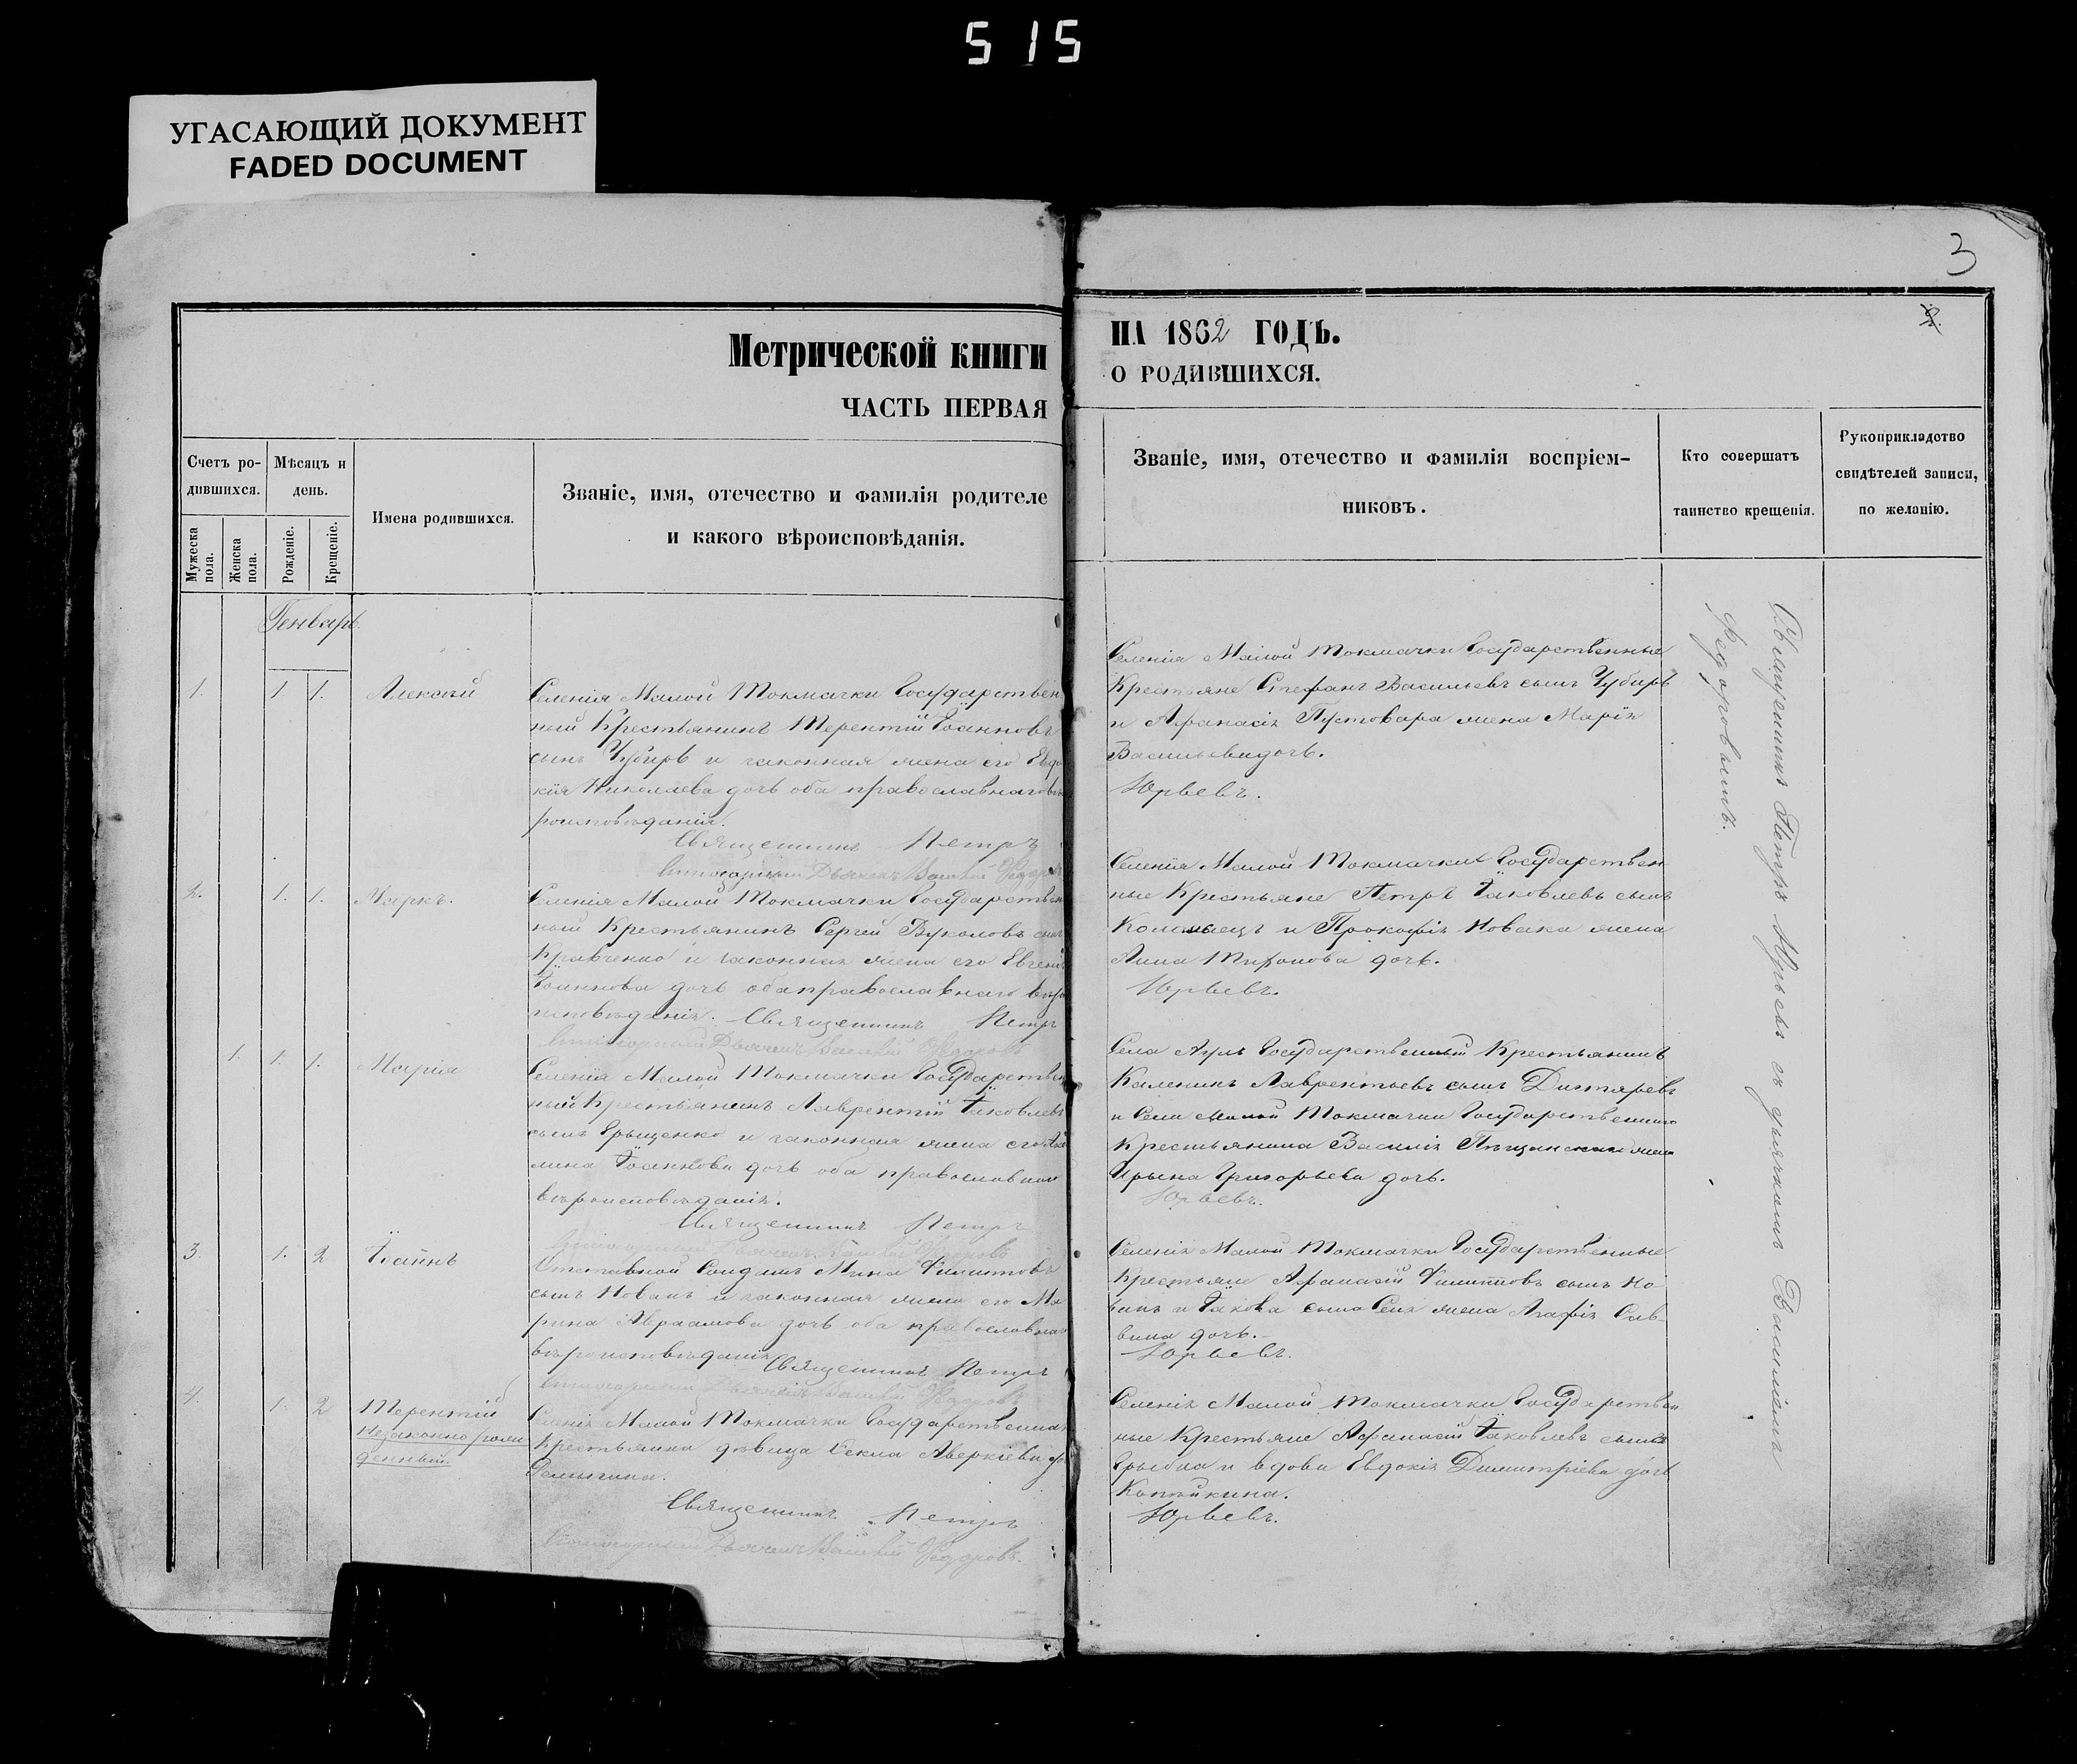 515
УГАСАЮЩИЙ ДОКУМЕНТ
FADED DOCUMENT
3
Метрической книги
ЧАСТЬ ПЕРВАЯ
НА 1862 ГОДЪ.
О РОДИВШИХСЯ.
Счетъ ро-
дившихся.
Мужеска пола.
Женска пола.
Мѣсяцъ и
день.
Рожденіе.
Крещеніе.
Имена родившихся.
Званіе, имя, отечество и фамилія родителе
и какого вѣроисповѣданія.
Званіе, имя, отечество и фамилія воспріем-
никовъ.
Кто совершатъ
таинство крещенія.
Рукоприкладство
свидѣтелей записи,
по желанію.
Генварь
1. 1. 1. Алексѣй
Селенія Малой Токмачки Государствен
ный Крестьянинъ Терентій Іоанновъ
сынъ Чубирь и законная жена его Евдо
кія Николаева дочь оба православнаго вѣ
роисповѣданія.
Священникъ Петръ
Дьячекъ Василій Федоровъ
Селенія Малой Токмачки Государственные
Крестьяне Стефанъ Васильевъ сынъ Чубирь
и Афанасія Пустовара жена Марія
Васильева дочь.
Юрьевъ.
2. 1. 1. Маркъ.
Селенія Малой Токмачки Государствен
ный Крестьянинъ Сергей Вуколовъ сынъ
Кравченко и законная жена его Евгенія
Іоаннова дочь оба православнаго вѣро
исповѣданія. Священникъ Петръ
Дьячекъ Василій Федоровъ
Селенія Малой Токмачки Государствен-
ные Крестьяне Петръ Іаковлевъ сынъ
и Прокофія Новака жена
Анна дочь.
Юрьевъ.
1. 1. 1. Марія
Селенія Малой Токмачки Государствен
ный Крестьянинъ Лаврентій Іаковлевъ
сынъ Грыценко и законная жена его Аку
лина Іоаннова дочь оба православнаго
вѣроисповѣданія.
Священникъ Петръ
Дьячекъ Василій Федоровъ
Села Государственный Крестьянинъ
Лаврентьевъ сынъ
и Села Малой Токмачки Государственнаго
Крестьянина Василія жена
Ирына Григорьева дочь.
Юрьевъ.
3. 1. 2 Іоаннъ
Отставной Солдатъ Мина Филиповъ
сынъ Новакъ и законная жена его Ма
рина Авраамова дочь оба православнаго
вѣроисповѣданія
Священникъ Петръ
Дьячекъ Василій Федоровъ
Селенія Малой Токмачки Государственные
Крестьяне Афанасій Филиповъ сынъ Но
вакъ и Іакова жена Агафія Сав-
вина дочь.
Юрьевъ.
4. 1. 2 Терентій
Незаконно рож
денный.
Селенія Малой Токмачки Государственная
Крестьянка дѣвица Ѳекла Аверкіева до
Священникъ Петръ
Дьячекъ Василій Федоровъ.
Селенія Малой Токмачки Государствен
ные Крестьяне Афанасій Іаковлевъ сынъ
и вдова Евдокія Димитріева дочь
Копѣйкина.
Юрьевъ.
Священникъ Петръ Юрьевъ съ дьячкомъ Василіемъ
Федоровымъ.